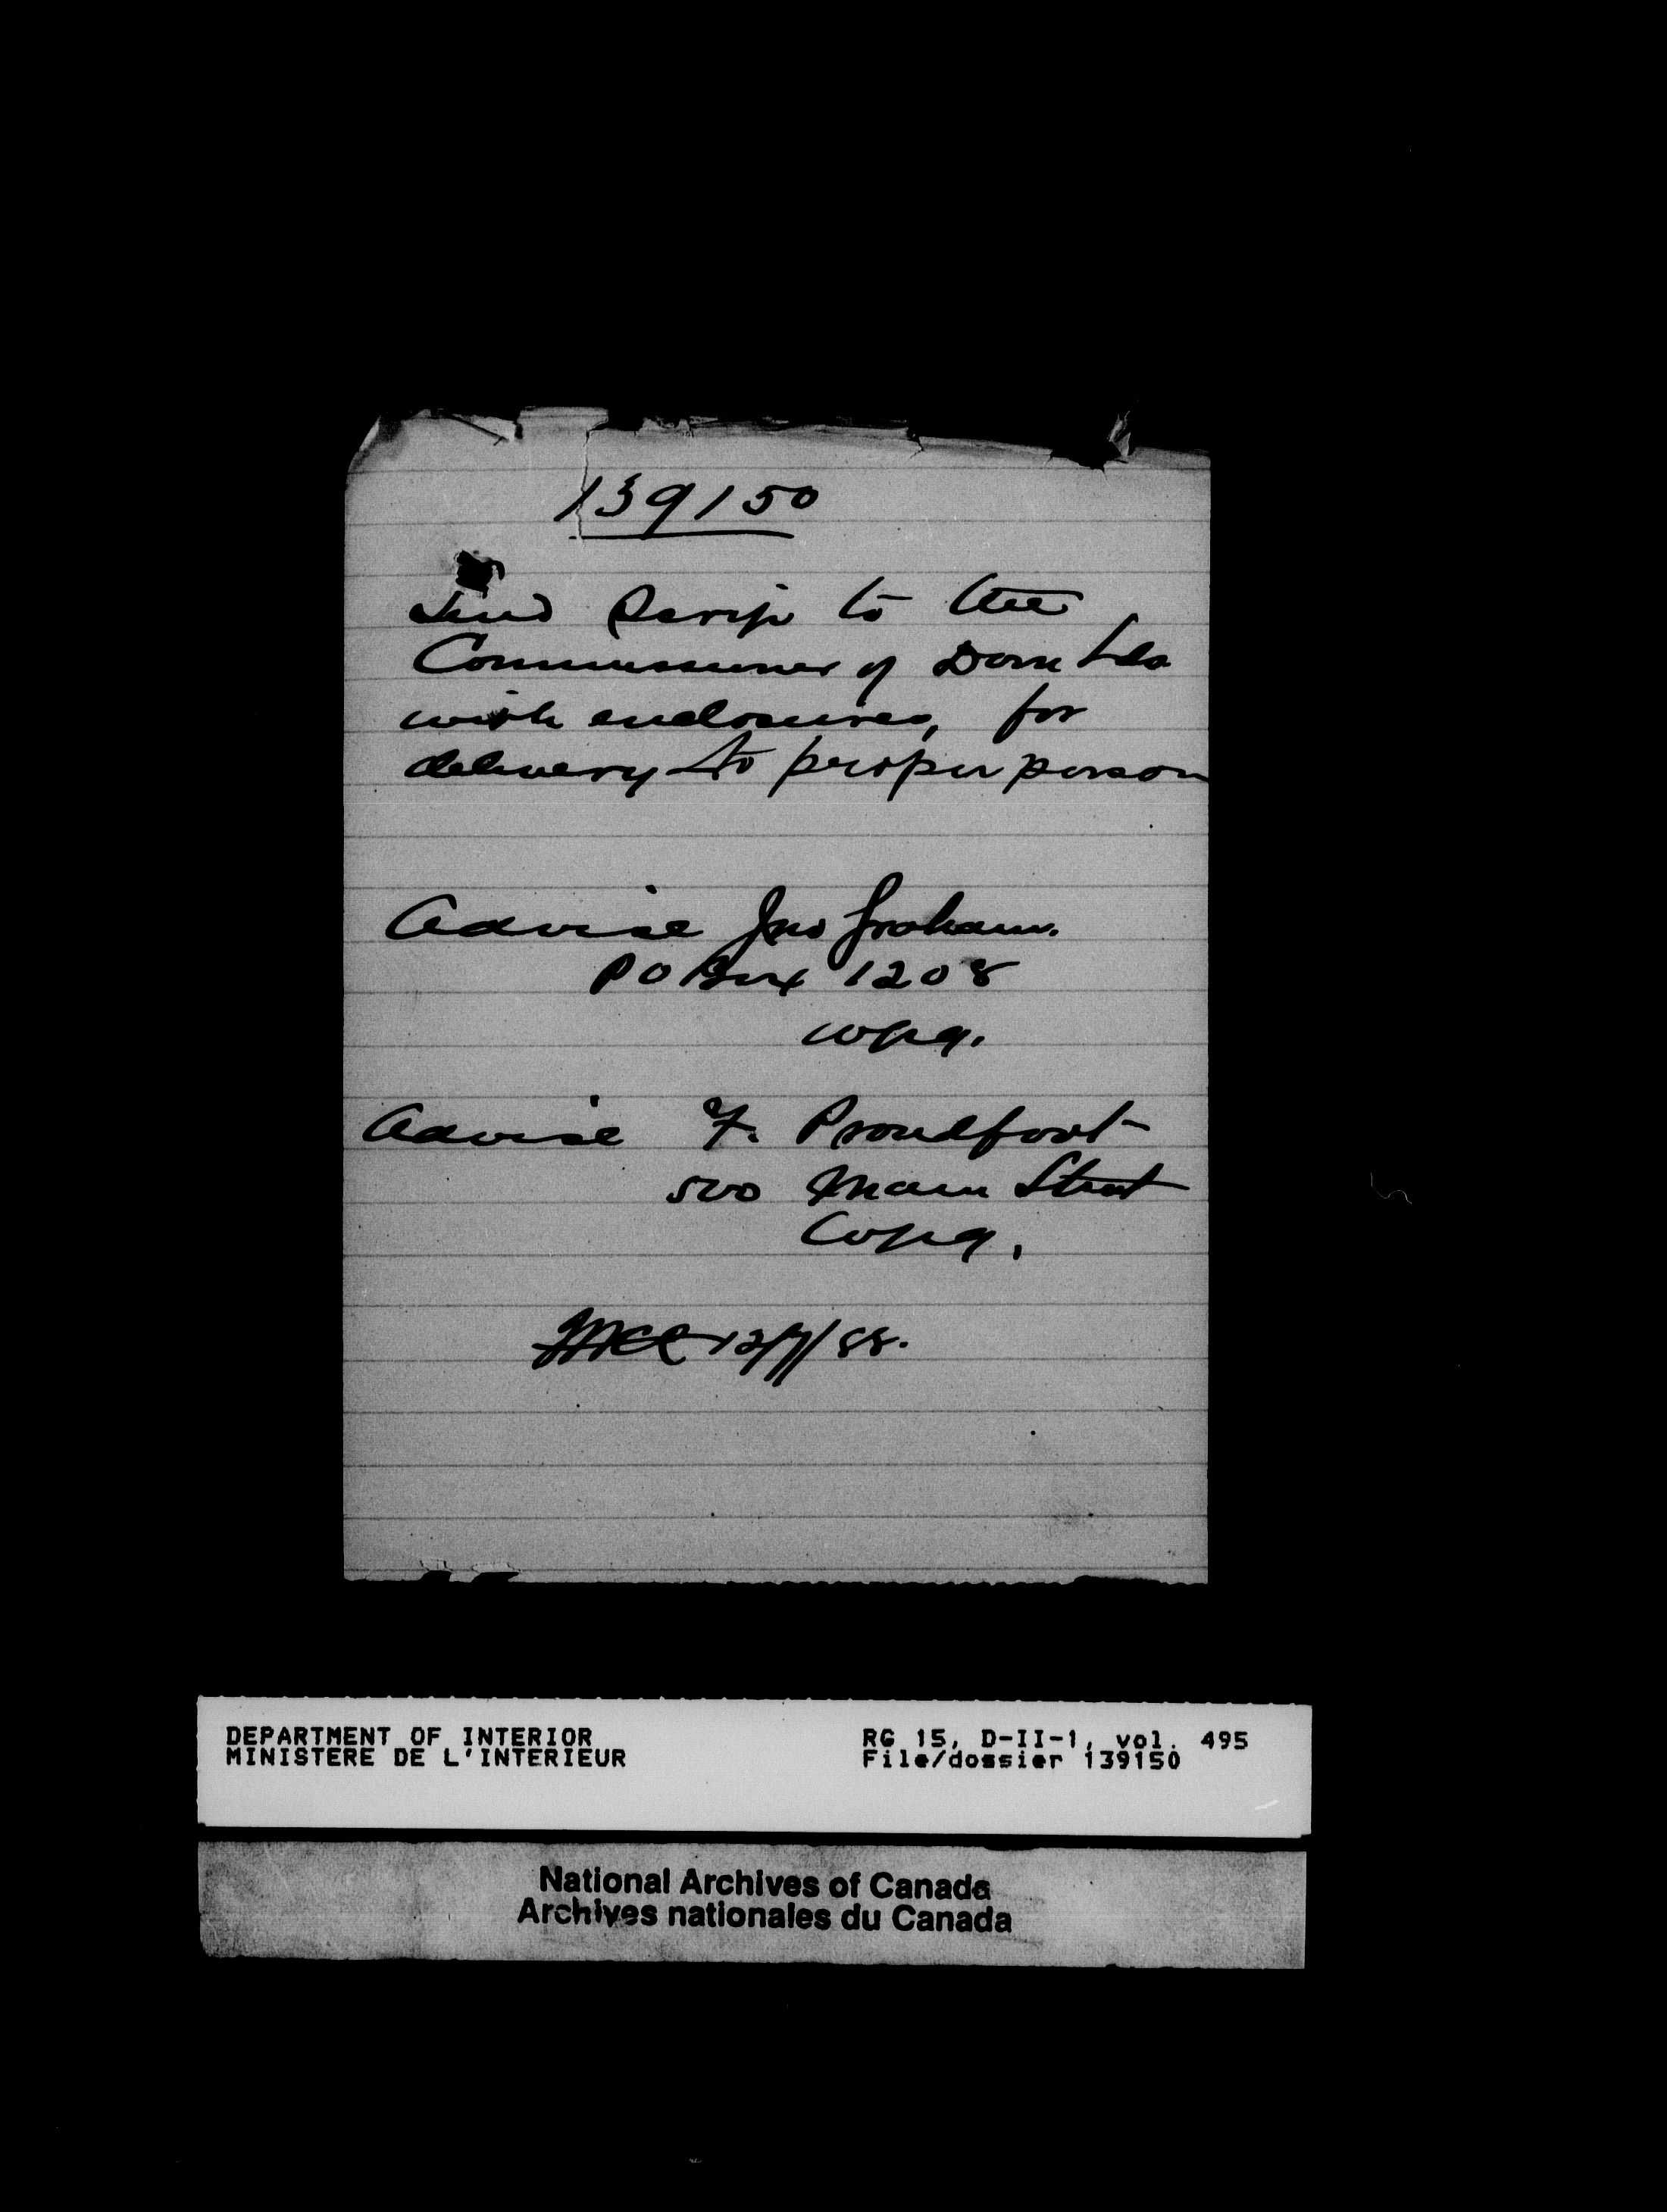 139150
Send Scrip to the
Commissioner of Dom Lds
with enclosures, for
delivery to proper person
Advise Jno Graham.
P O Box 1208
Wpg.
Advise F. Proudfoot
500 Main Street
Wpg.
12/7/88.
DEPARTMENT OF INTERIOR
MINISTERE DE L'INTERIEUR
RG 15, D-II-1, vol. 495
File/dossier 139150
National Archives of Canada
Archives nationales du Canada